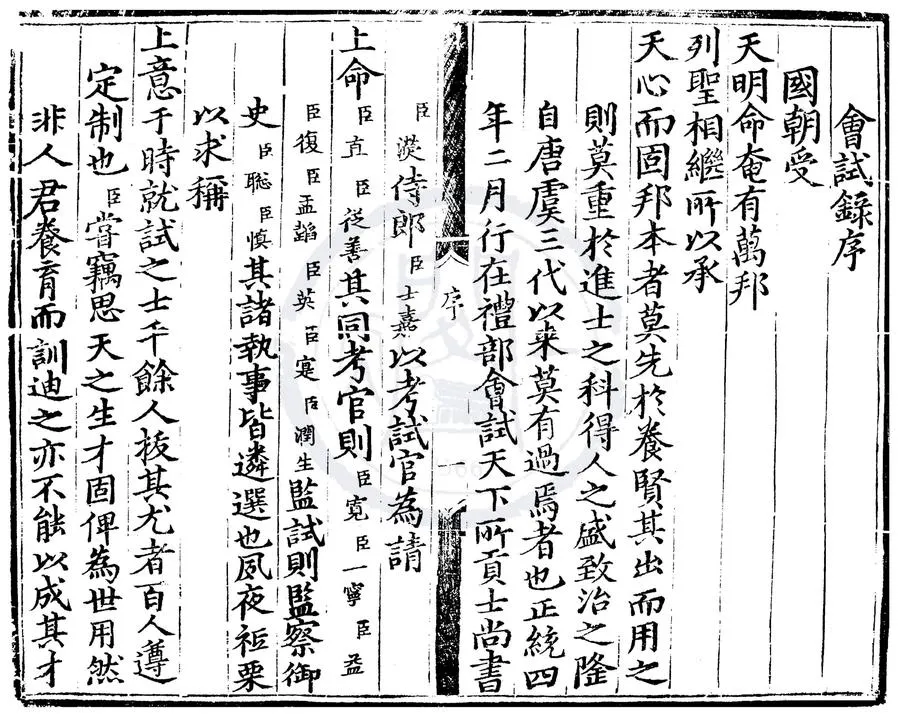 會試錄序
國朝受
天明命奄有萬邦
列聖相繼所以承
天心而固邦本者莫先於養賢其出而用之
則莫重於進士之科得人之盛致治之隆
自唐虞三代以來莫有過焉者也正統四
年二月行在禮部會試天下所貢士尚書
序
臣濙侍郎臣士嘉以考試官為請
上命臣直臣從善其同考官則臣寬臣一寧臣益
臣復臣孟臣英臣寔臣潤生監試則監察御
史臣聡臣慎其諸執事皆遴選也夙夜祗栗
以求稱
上意于時就試之士千餘人拔其尤者百人遵
定制也臣嘗竊思天之生才固俾為世用然
非人君養育而訓迪之亦不能以成其才